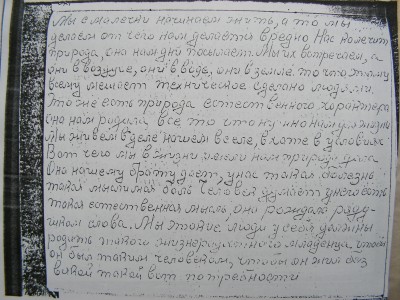 Мы с малечки начинаем жить, а то мы
делаем от чего нам делается вредно Нас калечит
природа, она нам дни посылает. Мы их встречаем, а
они в воздухе, они в воде, они в земле. то что этому
всему мешает техническое сделано людями.
то же есть природа естественного характера
она нам родила все то что нужно нам для жизни
Мы живем в деле нашем в селе, в хате в условиях
Вот чего мы в жизни имели нам природа дала
Она нашему брату дает, у нас такая болезнь
такая мыслимая боль человек думает у него есть
такая естественная мысль, она рождала
слова. Мы такие люди у себя должны
родить такого жизнерадостного младенца, чтобы
он был таким человеком, чтобы он жил без
всякой такой вот потребности